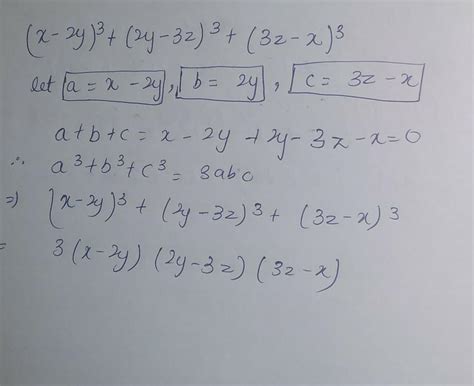 (x-2y)³+(2y-3z)³+(3z-x)³
let a = x - 2y, b = 2y, c = 3z - x
a+b+c = x - 2y + 2y - 3z - x = 0
∴ a³+b³+c³ = 3abc
⇒) (x-2y)³ + (2y-3z)³ + (3z-x)³
= 3(x-2y) (2y-3z) (3z-x)